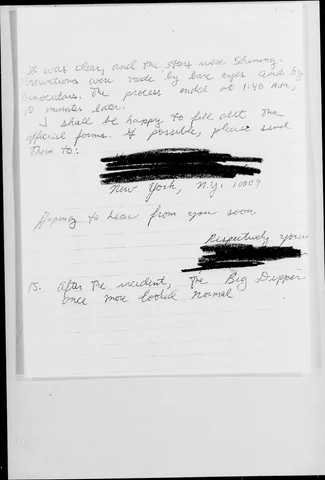 It was clear, and the stars were shining.
Observations were made by bare eyes and by
binoculars. The process ended at 1:40 A.M.,
minutes later.
I shall be happy to fill out the
official forms. If possible, please send
them to:
New York, N.Y. 10009
Hoping to hear from you soon
Respectively yours
P.S. After the incident, the Big Dipper
once more looked normal